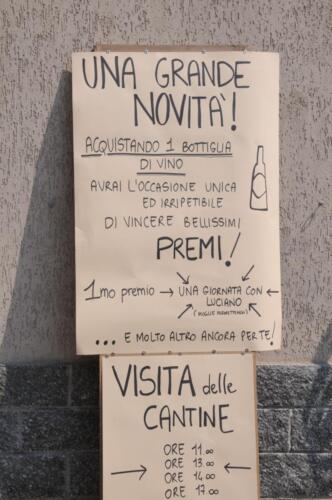 UNA GRANDE
NOVITA'!
ACQUISTANDO 1 BOTTIGLIA
DI VINO
AVRAI L'OCCASIONE UNICA
ED IRRIPETIBILE
DI VINCERE BELLISSIMI
PREMI!
1mo premio → UNA GIORNATA CON ←
LUCIANO
(MOGLIE PERMETTENDO)
... E MOLTO ALTRO ANCORA PER TE!
VISITA delle
CANTINE
ORE 11.00
ORE 13.00
ORE 14.00
ORE 17.00